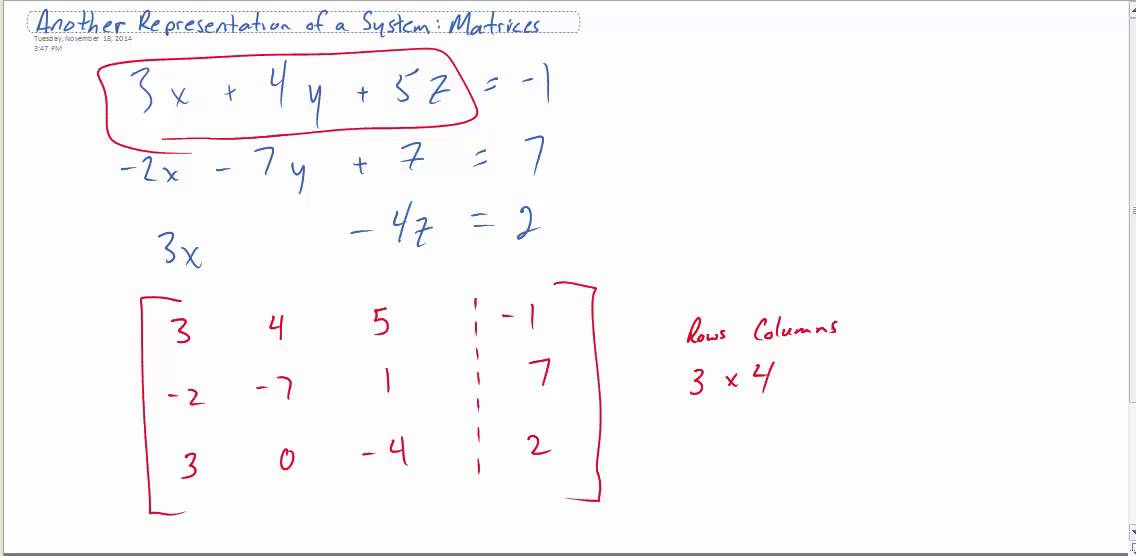 Another Representation of a System: Matrices
Tuesday, November 18, 2014
3:47 PM
3x + 4y + 5z = -1
-2x - 7y + z = 7
3x - 4z = 2
3 4 5 -1
-2 -7 1 7
3 0 -4 2
Rows Columns
3 x 4